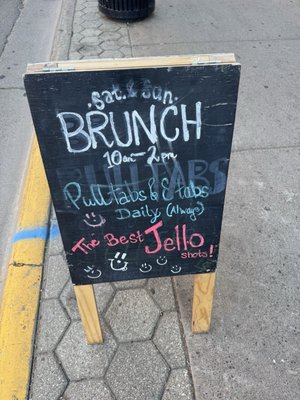 Sat. & Sun.
BRUNCH
10am-2pm
Pull Tabs & E tabs
Daily (Always)
The Best Jello
shots!